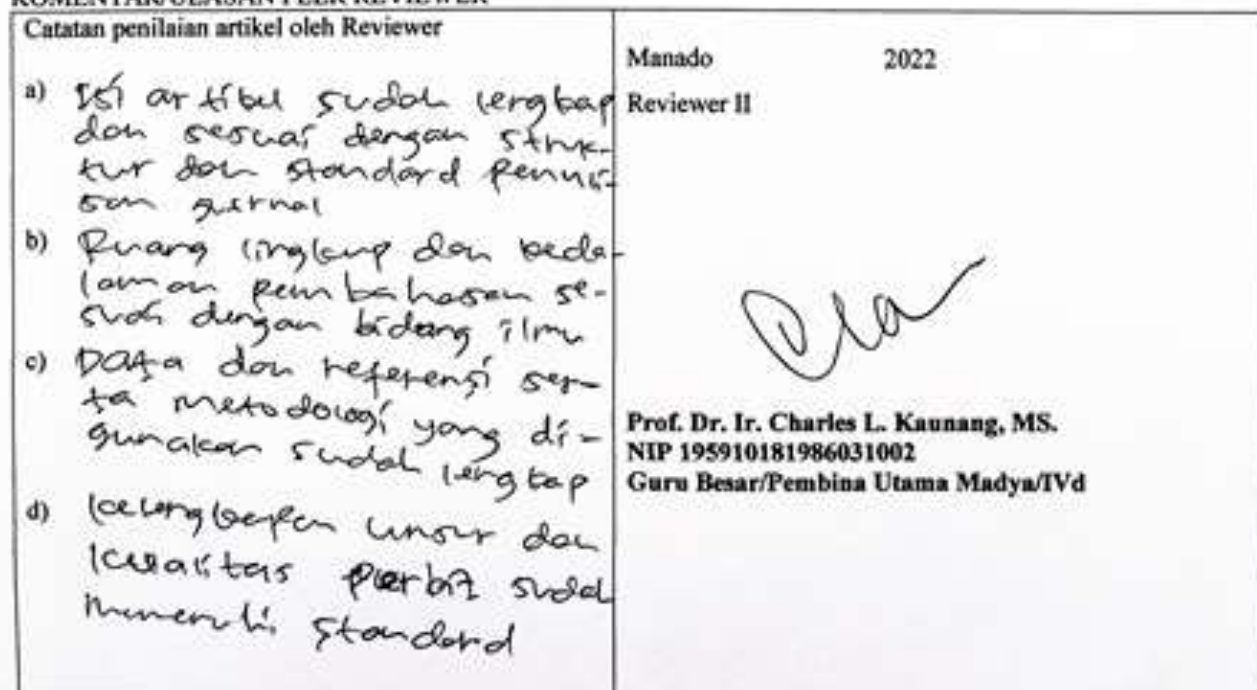 KOMENTAR/ULASAN PEER REVIEWER
Catatan penilaian artikel oleh Reviewer
a) Isi artikel sudah lengkap
dan sesuai dengan struk-
tur dan standard penuli-
san jurnal
b) Ruang lingkup dan keda-
laman pembahasan se-
suai dengan bidang ilmu
c) Data dan referensi ser-
ta metodologi yang di-
gunakan sudah lengkap
d) kelengkapan unsur dan
kualitas sudah
memenuhi standard
Manado 2022
Reviewer II
Prof. Dr. Ir. Charles L. Kaunang, MS.
NIP 195910181986031002
Guru Besar/Pembina Utama Madya/IVd